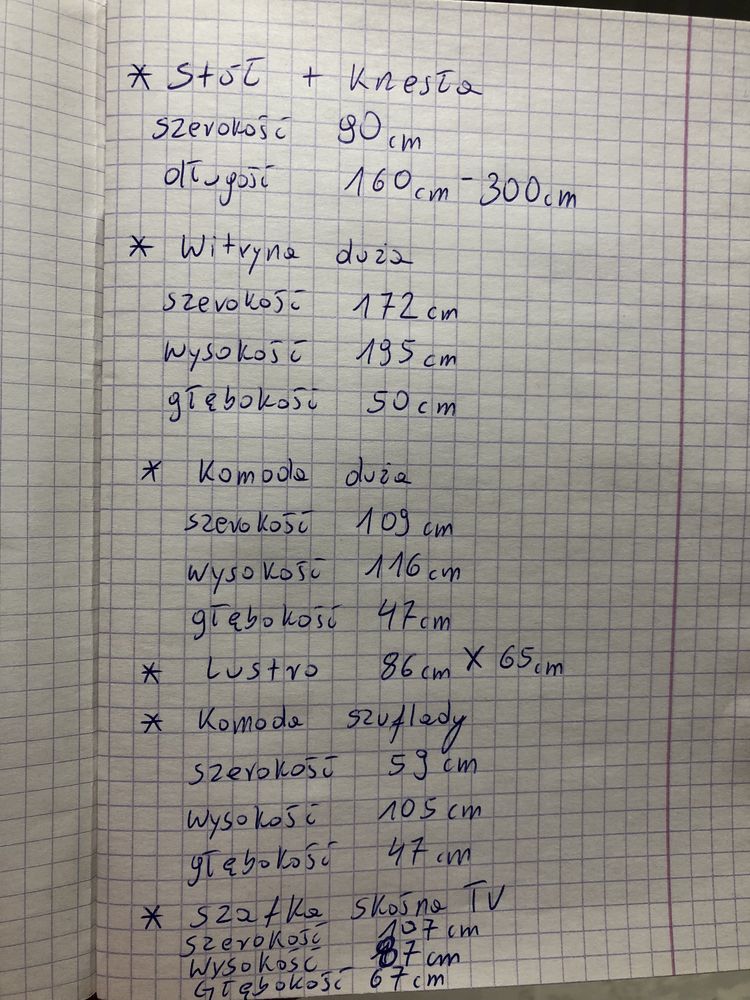 * Stół + Krzesła
szerokość 90cm
długość 160cm - 300cm
* Witryna duża
szerokość 172 cm
wysokość 195 cm
głębokość 50 cm
* Komoda duża
szerokość 109 cm
wysokość 116 cm
głębokość 47 cm
* Lustro 86cm X 65cm
* Komoda szuflady
szerokość 59 cm
wysokość 105 cm
głębokość 47 cm
* Szafka skośna TV
szerokość 107 cm
wysokość 87 cm
Głębokość 67 cm